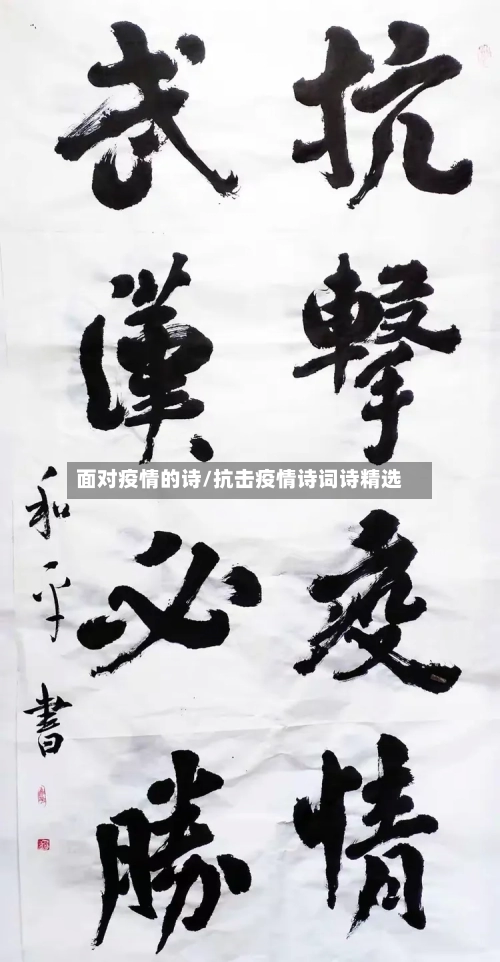 抗擊疫情
武漢必勝
和平書
面对疫情的诗/抗击疫情诗词诗精选